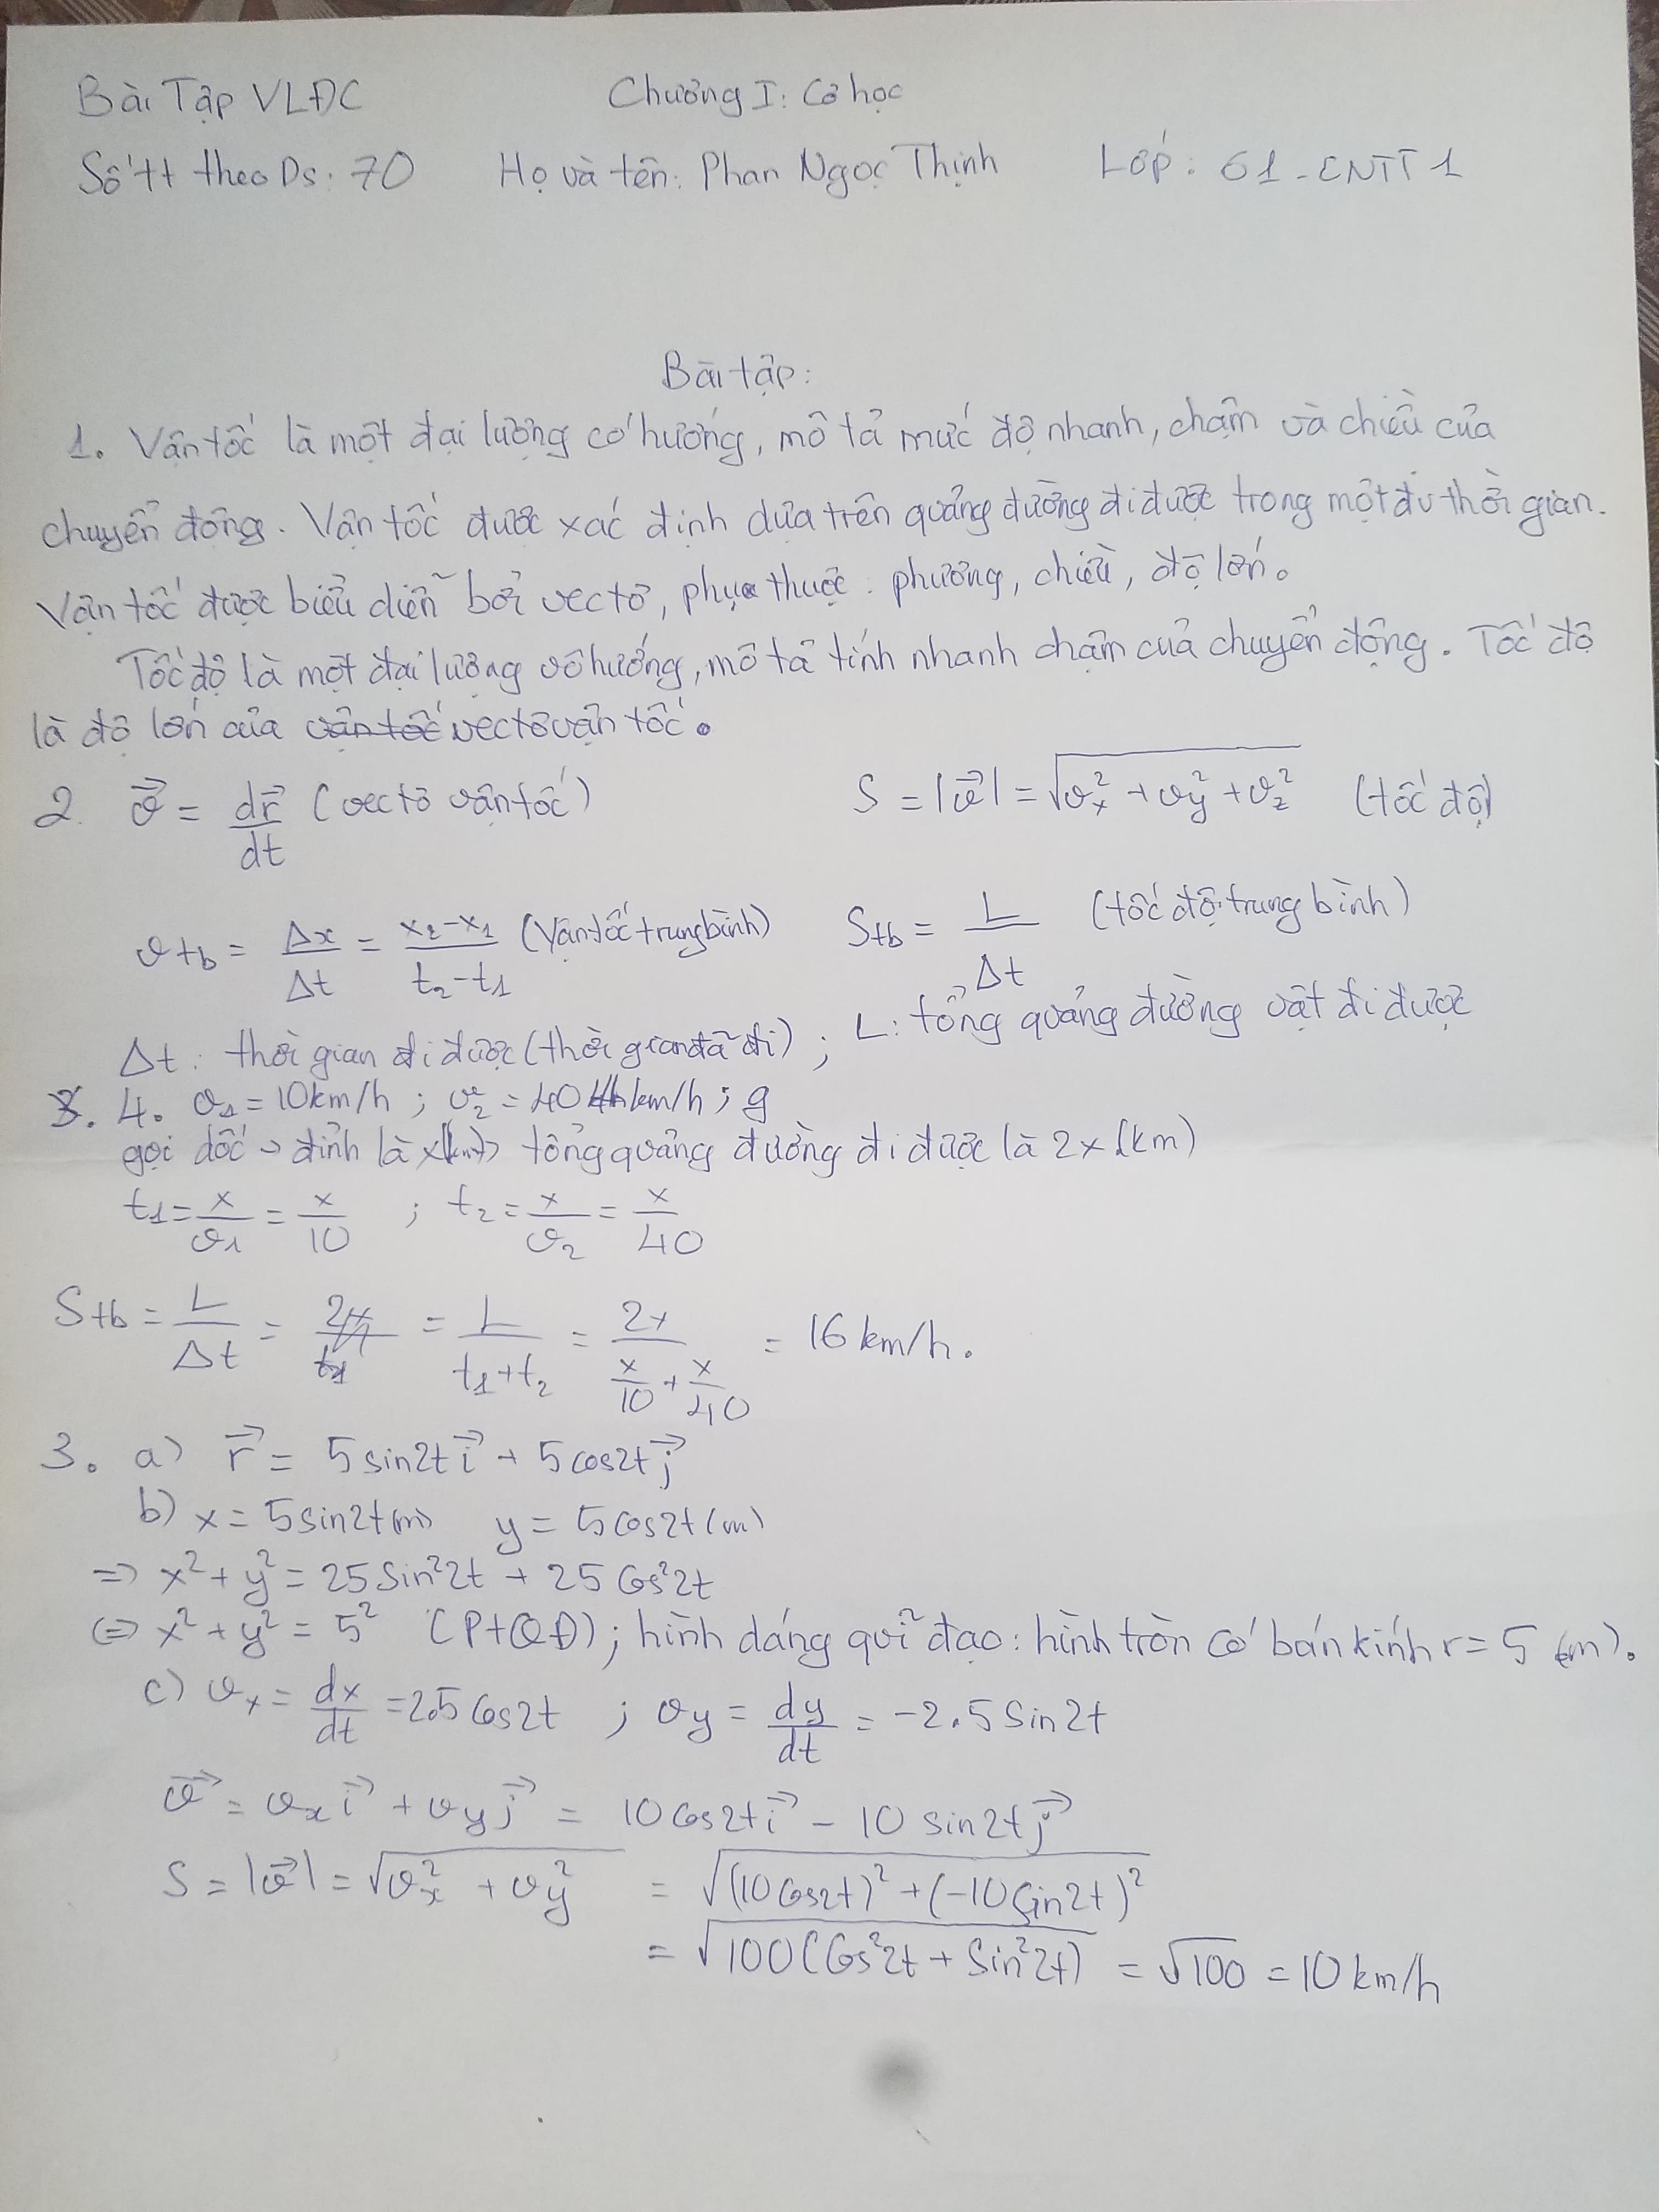 Bài Tập VLĐC Chương I: Cơ học
Số tt theo Ds: 70 Họ và tên: Phan Ngọc Thịnh Lớp: 61-CNTT1
Bài tập:
1. Vận tốc là một đại lượng có hướng, mô tả mức độ nhanh, chậm và chiều của
chuyển động. Vận tốc được xác định dựa trên quảng đường đi được trong một đv thời gian.
Vận tốc được biểu diễn bởi vectơ, phụ thuộc: phương, chiều, độ lớn.
Tốc độ là một đại lượng vô hướng, mô tả tính nhanh chậm của chuyển động. Tốc độ
là độ lớn của vận tốc vectơ vận tốc.
2. v⃗ = dr⃗/dt (vectơ vận tốc) S = |v⃗| = √(vx² + vy² + vz²) (tốc độ)
vtb = Δx/Δt = (x2-x1)/(t2-t1) (Vận tốc trung bình) Stb = L/Δt (tốc độ trung bình)
Δt: thời gian đi được (thời gian đã đi); L: tổng quảng đường vật đi được
3. 4. v1 = 10km/h; v2 = 40 km/h; g
gọi dốc → đỉnh là x(km) → tổng quảng đường đi được là 2x (km)
t1 = x/v1 = x/10 ; t2 = x/v2 = x/40
Stb = L/Δt = 2x/t1 = L/(t1+t2) = 2x/(x/10 + x/40) = 16 km/h.
3. a) r⃗ = 5sin2t i⃗ + 5cos2t j⃗
b) x = 5sin2t(m) y = 5cos2t(m)
⇒ x² + y² = 25sin²2t + 25cos²2t
⇔ x² + y² = 5² (PTQĐ); hình dáng quĩ đạo: hình tròn có bán kính r = 5 (m).
c) vx = dx/dt = 2.5cos2t ; vy = dy/dt = -2.5sin2t
v⃗ = vx i⃗ + vy j⃗ = 10cos2t i⃗ - 10 sin2t j⃗
S = |v⃗| = √(vx² + vy²) = √((10cos2t)² + (-10sin2t)²)
= √(100(cos²2t + sin²2t)) = √100 = 10 km/h